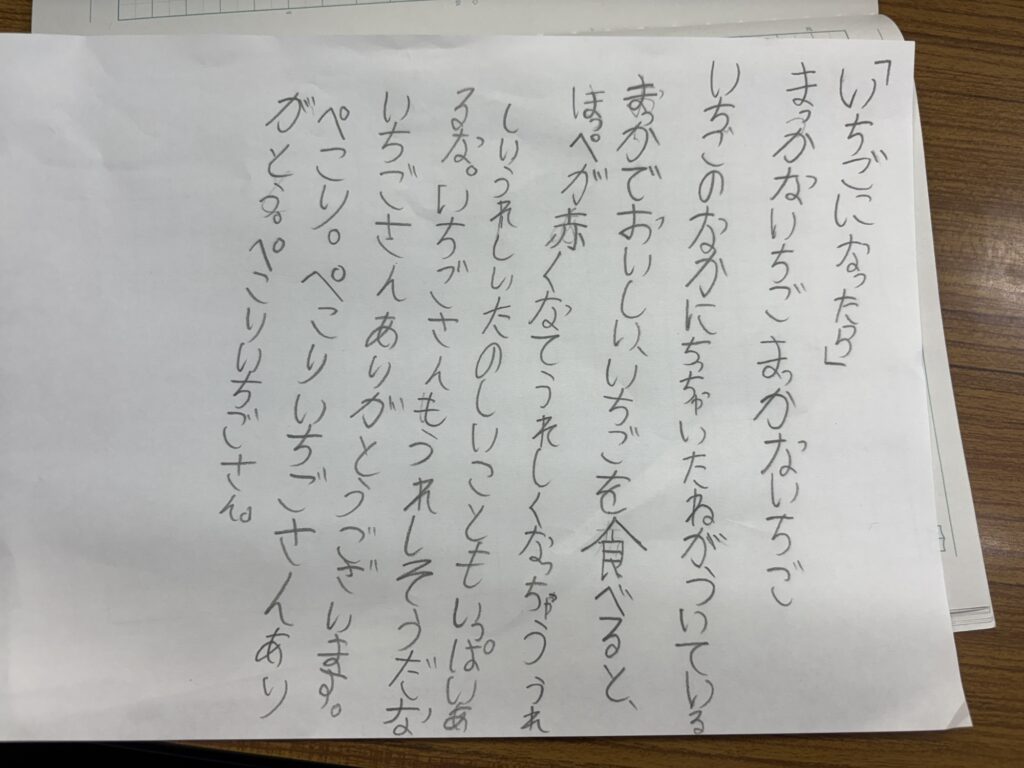 「いちごになったら」
まっかないちごまっかないちご
いちごのなかにちちゃいたねがついている
まっかでおいしい、いちごを食べると、
ほっぺが赤くなてうれしくなっちゃううれ
しいうれしいたのしいこともいっぱいあ
るな。「いちごさんもうれしそうだな
いちごさんありがとうございます。
ぺこり。ぺこりいちごさんあり
がとう。ぺこりいちごさん。